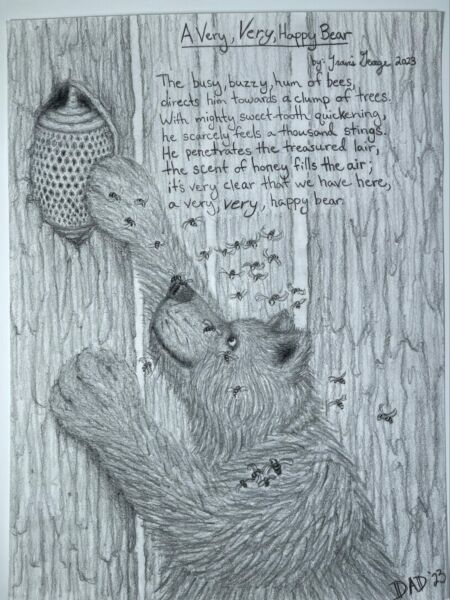 A Very, Very, Happy Bear
by: Travis Teage 2023
The busy, buzzy, hum of bees,
directs him towards a clump of trees.
With mighty sweet-tooth quickening,
he scarcely feels a thousand stings.
He penetrates the treasured lair,
the scent of honey fills the air;
it's very clear that we have here,
a very, very, happy bear.
DAD '23